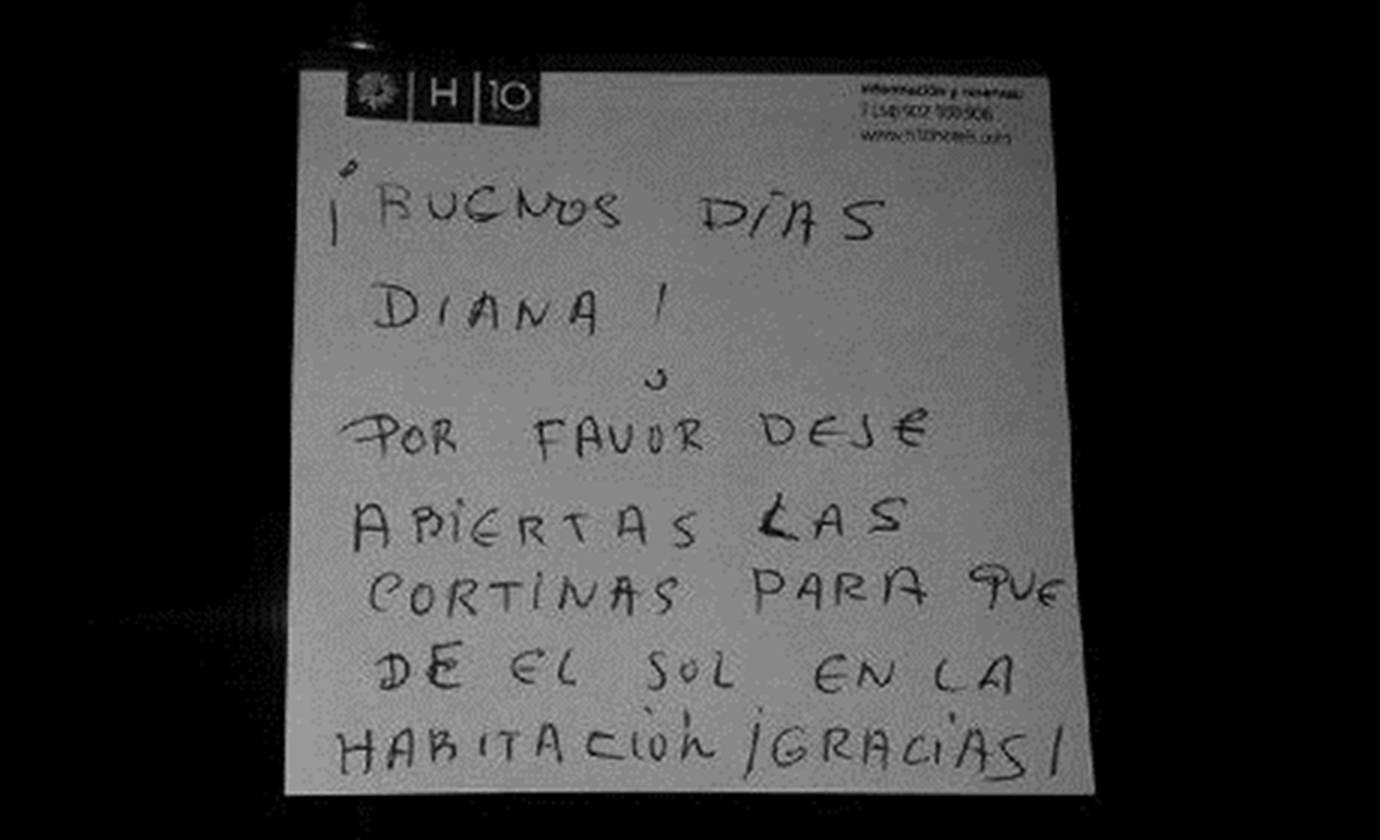 H10
Información y reservas:
www.h10hotels.com
¡BUENOS DÍAS
DIANA!
POR FAVOR DEJE
ABIERTAS LAS
CORTINAS PARA QUE
DE EL SOL EN LA
HABITACIÓN ¡GRACIAS!